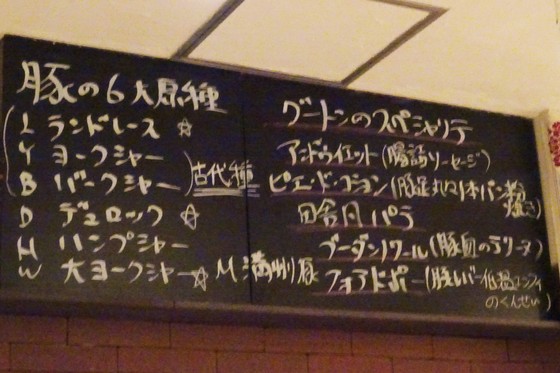 豚の6大原種
L ランドレース ☆
Y ヨークシャー
B バークシャー 古代種
D デュロック ☆
H ハンプシャー
W 大ヨークシャー ☆ M 満州豚
グートンのスペシャリテ
アンドゥイエット(腸詰ソーセージ)
ピエ・ド・コション(豚足丸々1本パン粉焼き)
田舎風パテ
ブーダンノワール(豚血のテリーヌ)
フォアドポー(豚レバー低温コンフィ
のくんせい)